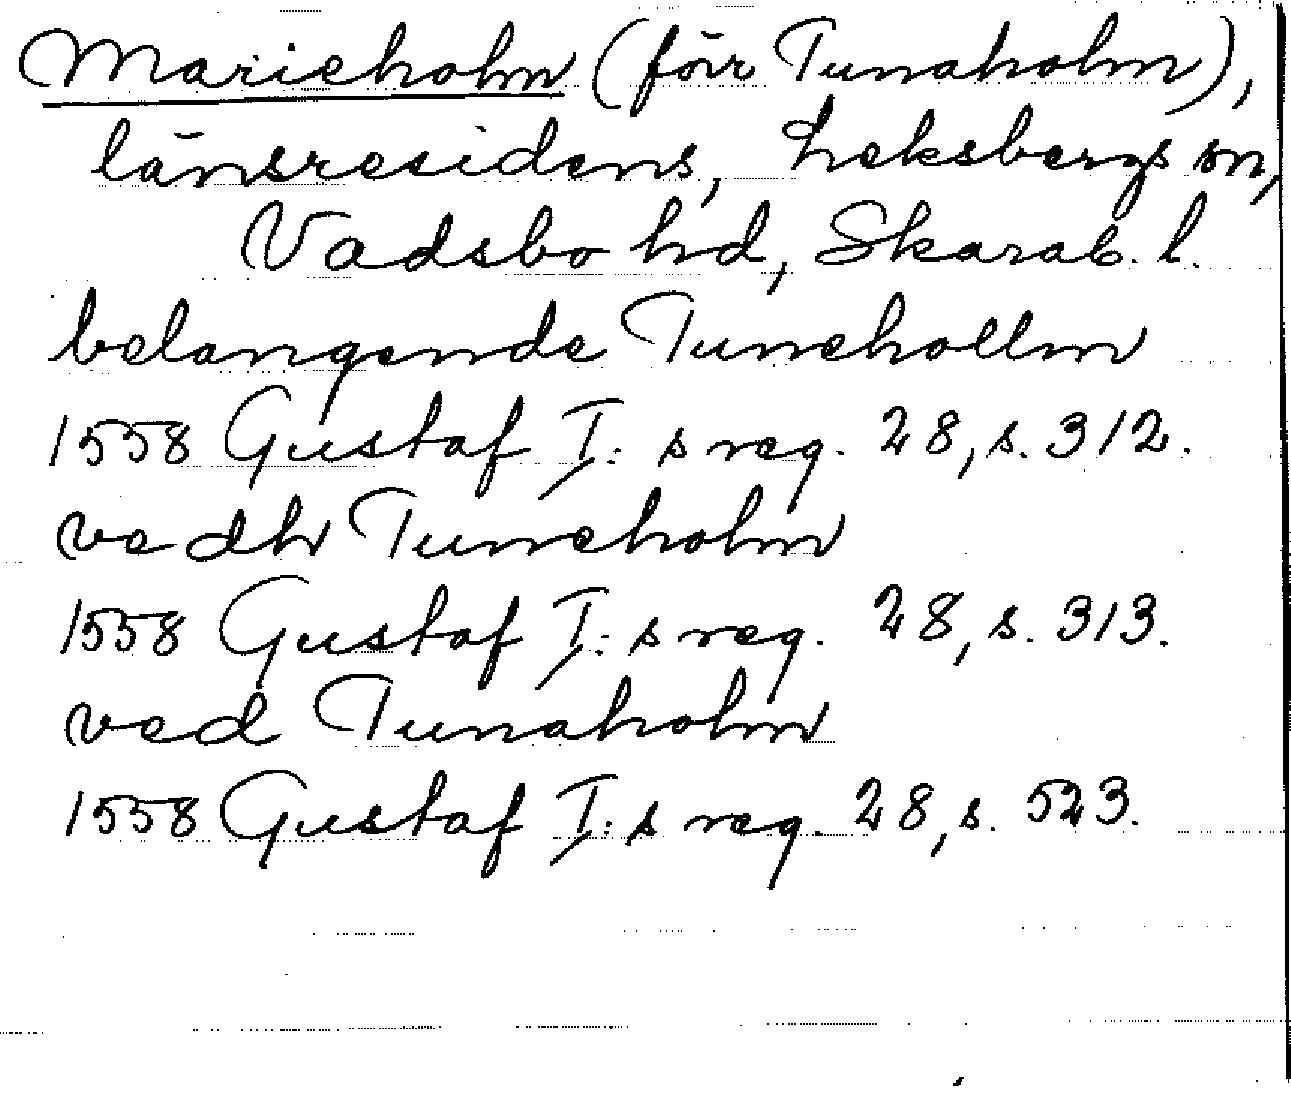 Marieholm (förr Tunaholm),
länsresidens, Leksbergs sn,
Vadsbo hd, Skarab. l.
belangende Tunehollm
1558 Gustaf I:s reg. 28, s. 312.
vedh Tuneholm
1558 Gustaf I:s reg. 28, s. 313.
ved Tunaholm
1558 Gustaf I:s reg. 28, s. 523.